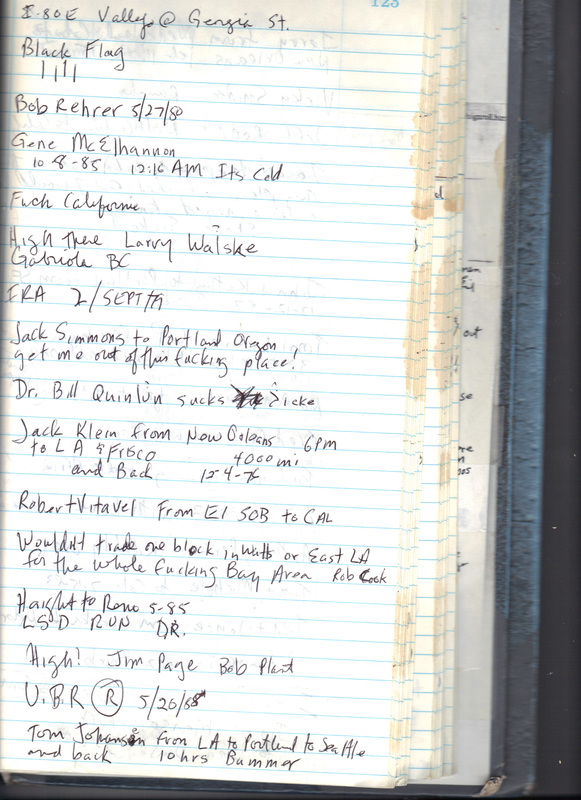 123
I-80E Valley @ Georgia St.
Black Flag
Bob Rehrer 5/27/80
Gene McElhannon
10-8-85 12:16 AM Its Cold
Fuck California
High there Larry Walske
Gabriola BC
IRA 2/SEPT/79
Jack Simmons to Portland Oregon
get me out of this fucking place!
Dr. Bill Quinlun sucks
Jack Klein from New Orleans 6pm
to LA & FRISCO 4000 mi
and Back 12-4-76
Robert Vitavel From El SOB to CAL
Wouldn't trade one block in Watts or East LA
for the whole fucking Bay Area Rob Cook
Haight to Reno 5-85
LSD RUN DR.
High! Jim Page Bob Plant
U.B.R (R) 5/20/88
Tom Johansen from LA to Portland to Seattle
and back 10hrs Bummer